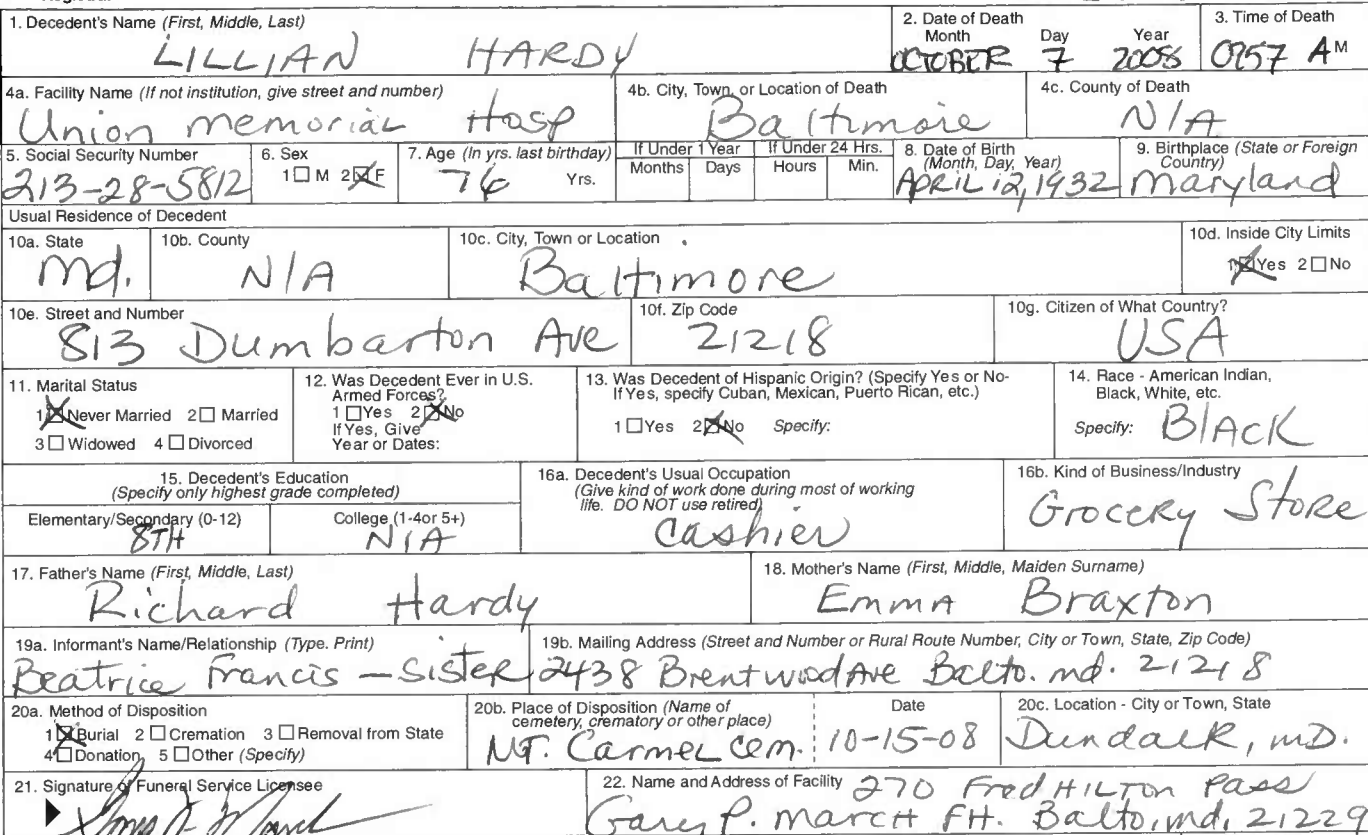 1. Decedent's Name (First, Middle, Last)
LILLIAN HARDY
2. Date of Death
Month Day Year
OCTOBER 7 2008
3. Time of Death
0757 AM
4a. Facility Name (If not institution, give street and number)
Union Memorial Hosp
4b. City, Town, or Location of Death
Baltimore
4c. County of Death
N/A
5. Social Security Number
213-28-5812
6. Sex
1 M 2 F
7. Age (In yrs. last birthday)
76 Yrs.
If Under 1 Year
Months Days
If Under 24 Hrs.
Hours Min.
8. Date of Birth
(Month, Day, Year)
APRIL 12, 1932
9. Birthplace (State or Foreign
Country)
Maryland
Usual Residence of Decedent
10a. State
Md.
10b. County
N/A
10c. City, Town or Location
Baltimore
10d. Inside City Limits
1 Yes 2 No
10e. Street and Number
813 Dumbarton Ave
10f. Zip Code
21218
10g. Citizen of What Country?
USA
11. Marital Status
1 Never Married 2 Married
3 Widowed 4 Divorced
12. Was Decedent Ever in U.S.
Armed Forces?
1 Yes 2 No
If Yes, Give
Year or Dates:
13. Was Decedent of Hispanic Origin? (Specify Yes or No-
If Yes, specify Cuban, Mexican, Puerto Rican, etc.)
1 Yes 2 No Specify:
14. Race - American Indian,
Black, White, etc.
Specify: BlACK
15. Decedent's Education
(Specify only highest grade completed)
Elementary/Secondary (0-12)
8TH
College (1-4or 5+)
N/A
16a. Decedent's Usual Occupation
(Give kind of work done during most of working
life. DO NOT use retired)
Cashier
16b. Kind of Business/Industry
Grocery Store
17. Father's Name (First, Middle, Last)
Richard Hardy
18. Mother's Name (First, Middle, Maiden Surname)
Emma Braxton
19a. Informant's Name/Relationship (Type. Print)
Beatrice Francis - Sister
19b. Mailing Address (Street and Number or Rural Route Number, City or Town, State, Zip Code)
2438 Brentwood Ave Balto. md. 21218
20a. Method of Disposition
1 Burial 2 Cremation 3 Removal from State
4 Donation 5 Other (Specify)
20b. Place of Disposition (Name of
cemetery, crematory or other place)
MT. Carmel Cem.
Date
10-15-08
20c. Location - City or Town, State
Dundalk, MD.
21. Signature of Funeral Service Licensee
22. Name and Address of Facility 270 Fred HILTON Pass
Gary P. MARCH FH. Balto, md, 21229